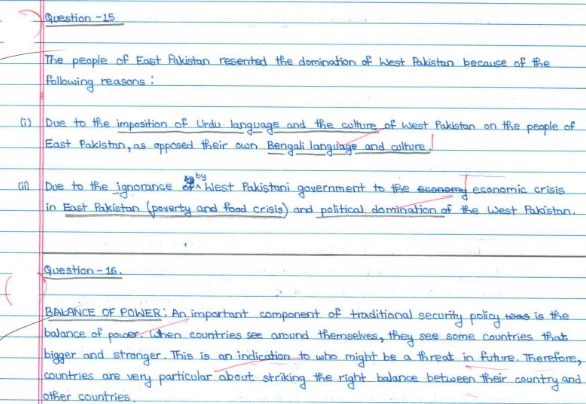 Question -15
The people of East Pakistan resented the domination of West Pakistan because of the
following reasons :
(i) Due to the imposition of Urdu language and the culture of West Pakistan on the people of
East Pakistan, as opposed their own Bengali language and culture.
(ii) Due to the ignorance by West Pakistani government to the economy economic crisis
in East Pakistan (poverty and food crisis) and political domination of the West Pakistan.
Question - 16.
BALANCE OF POWER : An important component of traditional security policy was is the
balance of power. When countries see around themselves, they see some countries that
bigger and stronger. This is an indication to who might be a threat in future. Therefore,
countries are very particular about striking the right balance between their country and
other countries.